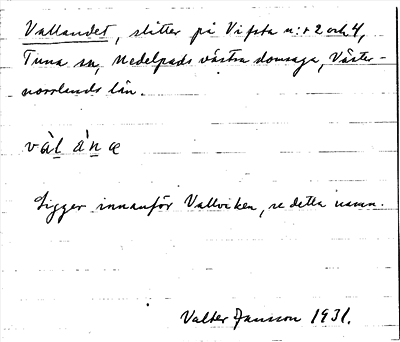 Vallandet, slitter på Vifsta n:r 2 och 4,
Tuna sn, Medelpads västra domsaga, Väster-
norrlands län.
våḻ åṉæ
Ligger innanför Vallviken, se detta namn.
Valter Jansson 1931.